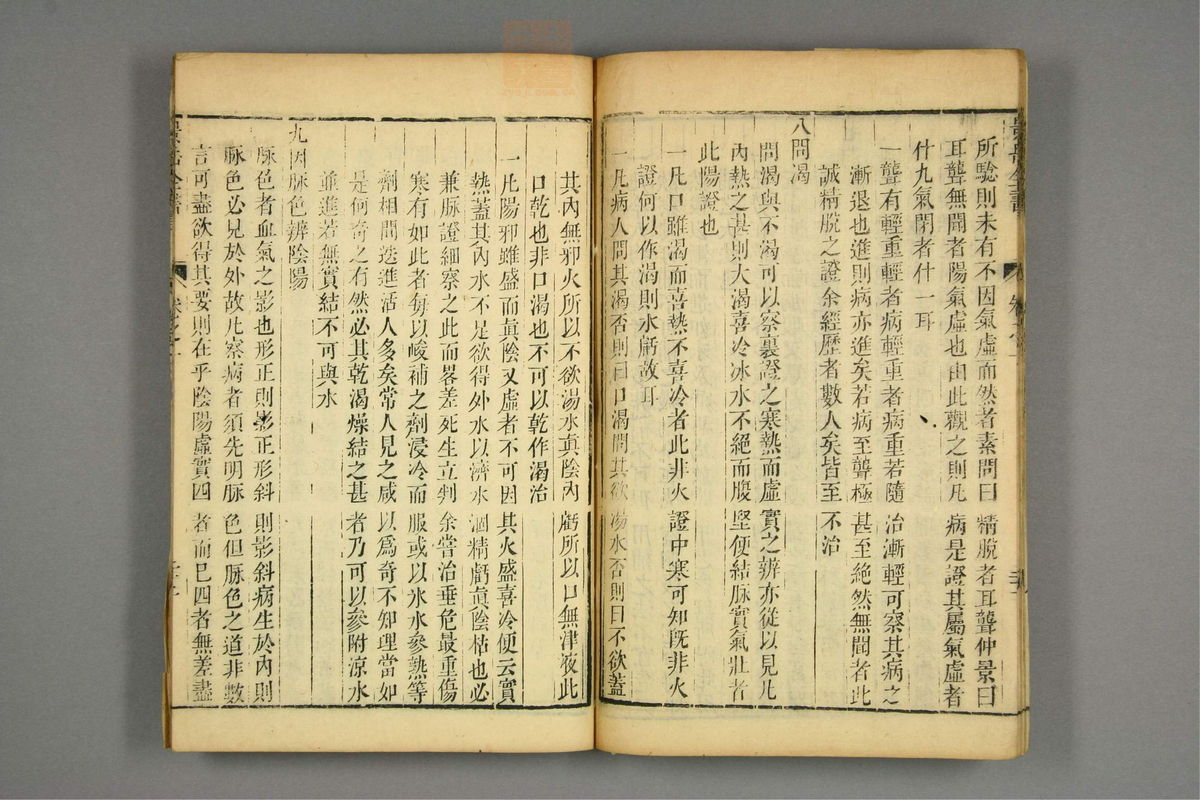 所騐則未有不因氣虛而然者素問曰精脫者耳聾仲景曰
耳聾無聞者陽氣虛也由此觀之則凡病是證其屬氣虛者
什九氣閉者什一耳
一聾有輕重輕者病輕重者病重若隨治漸輕可察其病之
漸退也進則病亦進矣若病至聾極甚至絕然無聞者此
誠精脫之證余經歷者數人矣皆至不治
八問渴
問渴與不渴可以察裏證之寒熱而虛實之辨亦從以見凡
內熱之甚則大渴喜冷冰水不絕而腹堅便結脉實氣壯者
此陽證也
一凡口雖渴而喜熱不喜冷者此非火證中寒可知既非火
證何以作渴則水虧故耳
一凡病人問其渴否則曰口渴問其欲湯水否則曰不欲蓋
其內無邪火所以不欲湯水眞陰內虧所以口無津液此
口乾也非口渴也不可以乾作渴治
一凡陽邪雖盛而眞陰又虛者不可因其火盛喜冷便云實
熱蓋其內水不足欲得外水以濟水涸精虧眞陰枯也必
兼脉證細察之此而畧差死生立判余嘗治垂危最重傷
寒有如此者每以峻補之劑浸冷而服或以冰水參熟等
劑相間迭進活人多矣常人見之咸以爲奇不知理當如
是何奇之有然必其乾渴燥結之甚者乃可以參附凉水
並進若無實結不可與水
九因脉色辨陰陽
脉色者血氣之影也形正則影正形斜則影斜病生於內則
脉色必見於外故凡察病者須先明脉色但脉色之道非數
言可盡欲得其要則在乎陰陽虛實四者而已四者無差盡
景岳全書
卷之一